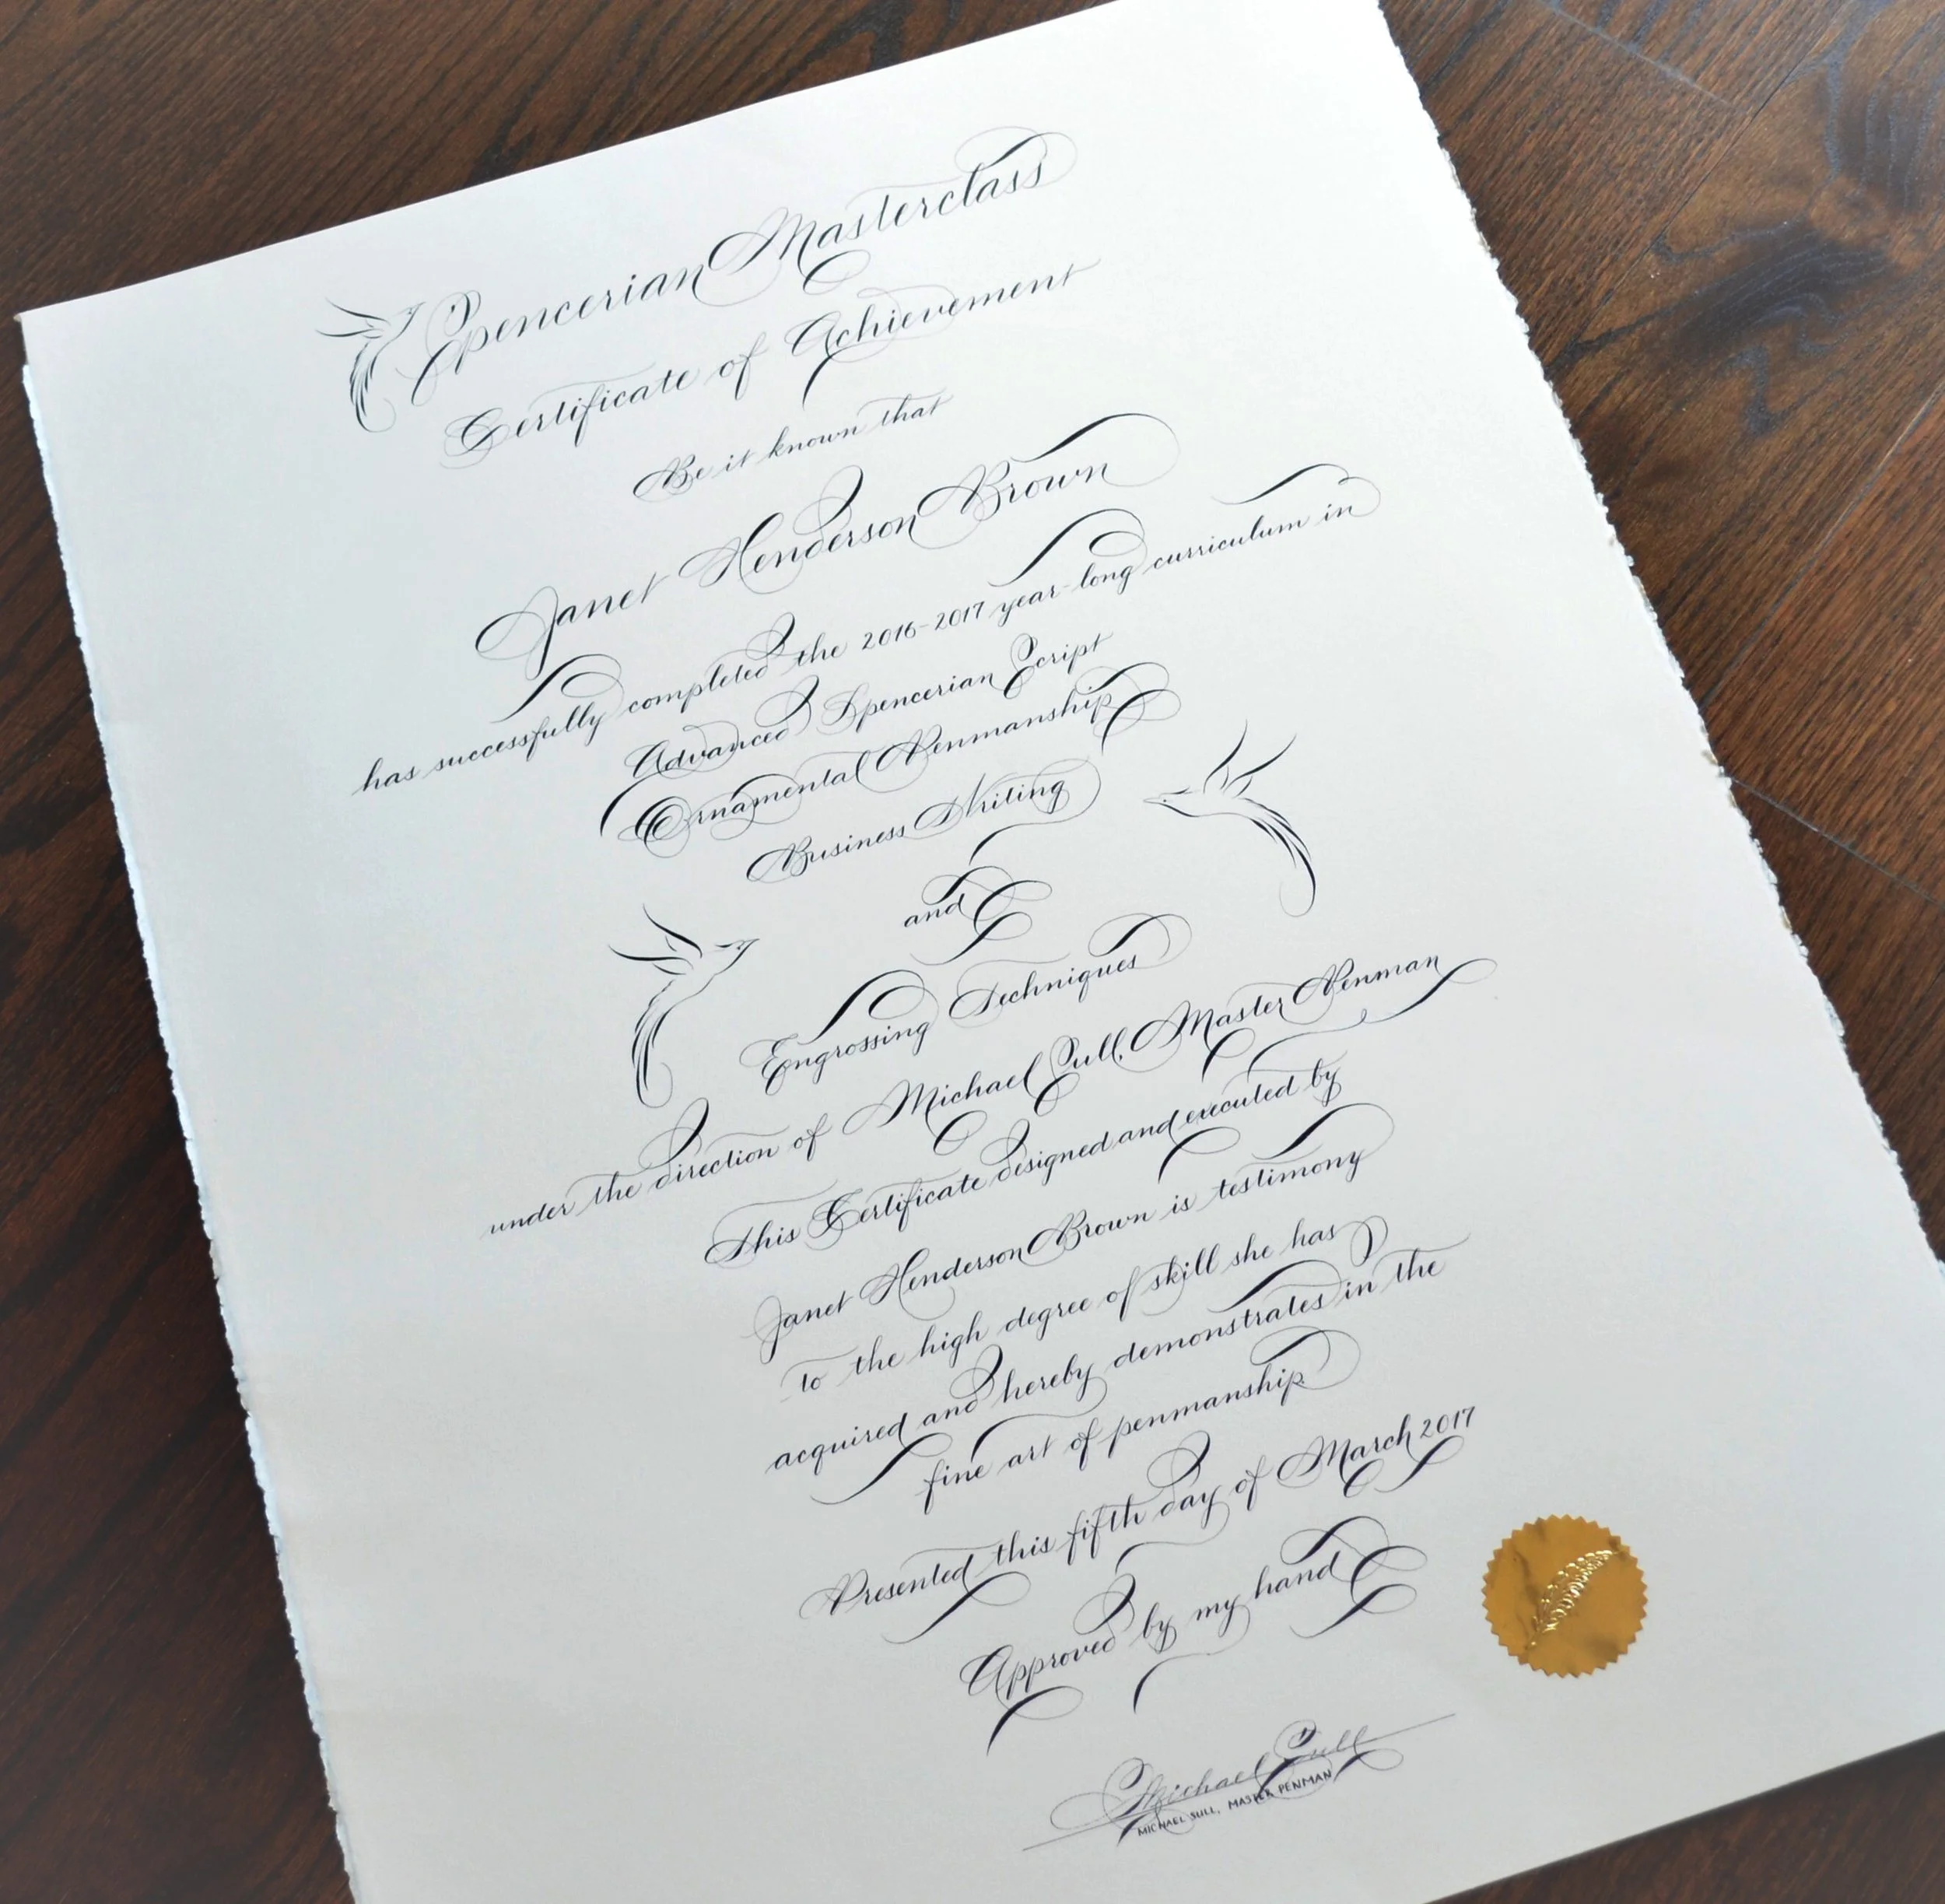 Spencerian Masterclass
Certificate of Achievement
Be it known that
Janet Henderson Brown
has successfully completed the 2016-2017 year-long curriculum in
Advanced Spencerian Script
Ornamental Penmanship
Business Writing
and
Engrossing Techniques
under the direction of Michael Sull, Master Penman
This Certificate designed and executed by
Janet Henderson Brown is testimony
to the high degree of skill she has
acquired and hereby demonstrates in the
fine art of penmanship.
Presented this fifth day of March 2017
Approved by my hand
Michael Sull
MICHAEL SULL, MASTER PENMAN